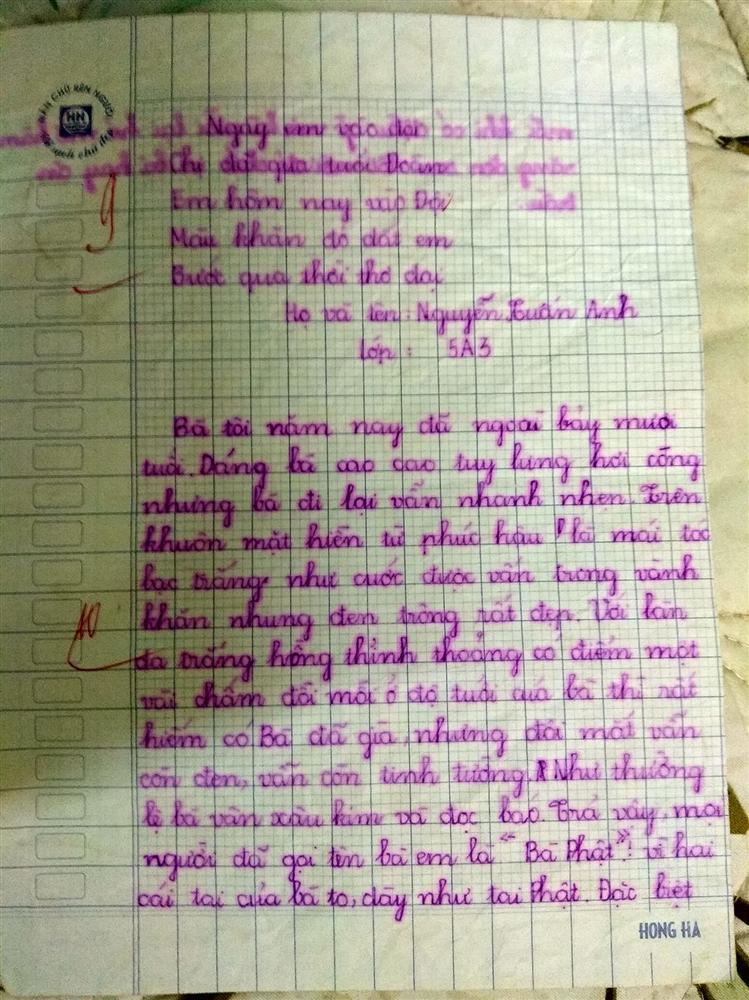 NÉT CHỮ RÈN NGƯỜI
HH
Ngày em vào đội
Chị đã qua tuổi Đoàn
Em hôm nay vào Đội
Màu khăn đỏ dắt em
Bước qua thời thơ dại
9
Họ và tên: Nguyễn Xuân Anh
Lớp: 5A3
Bà tôi năm nay đã ngoài bảy mươi
tuổi. Dáng bà cao cao tuy lưng hơi còng
nhưng bà đi lại vẫn nhanh nhẹn. Trên
khuôn mặt hiền từ phúc hậu là mái tóc
bạc trắng như cước được vấn trong vành
khăn nhung đen trông rất đẹp. Với làn
10
da trắng hồng thỉnh thoảng có điểm một
vài chấm đồi mồi ở độ tuổi của bà thì rất
hiếm có Bà đã già, nhưng đôi mắt vẫn
còn đen, vẫn còn tinh tường. Như thường
lệ bà vẫn xâu kim và đọc báo. Trả vậy, mọi
người đã gọi tên bà em là "Bà Phật"! vì hai
cái tai của bà to, dày như tai Phật. Đặc biệt
HONG HA